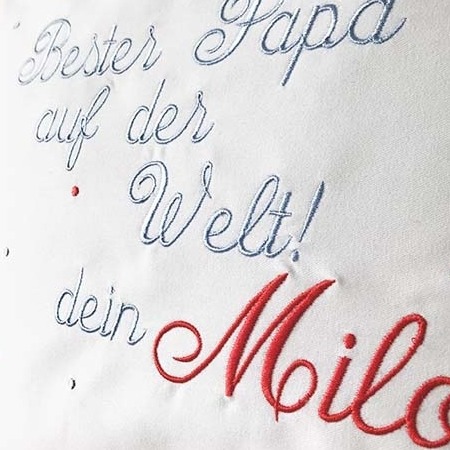 Bester Papa
auf der
Welt!
dein Milo